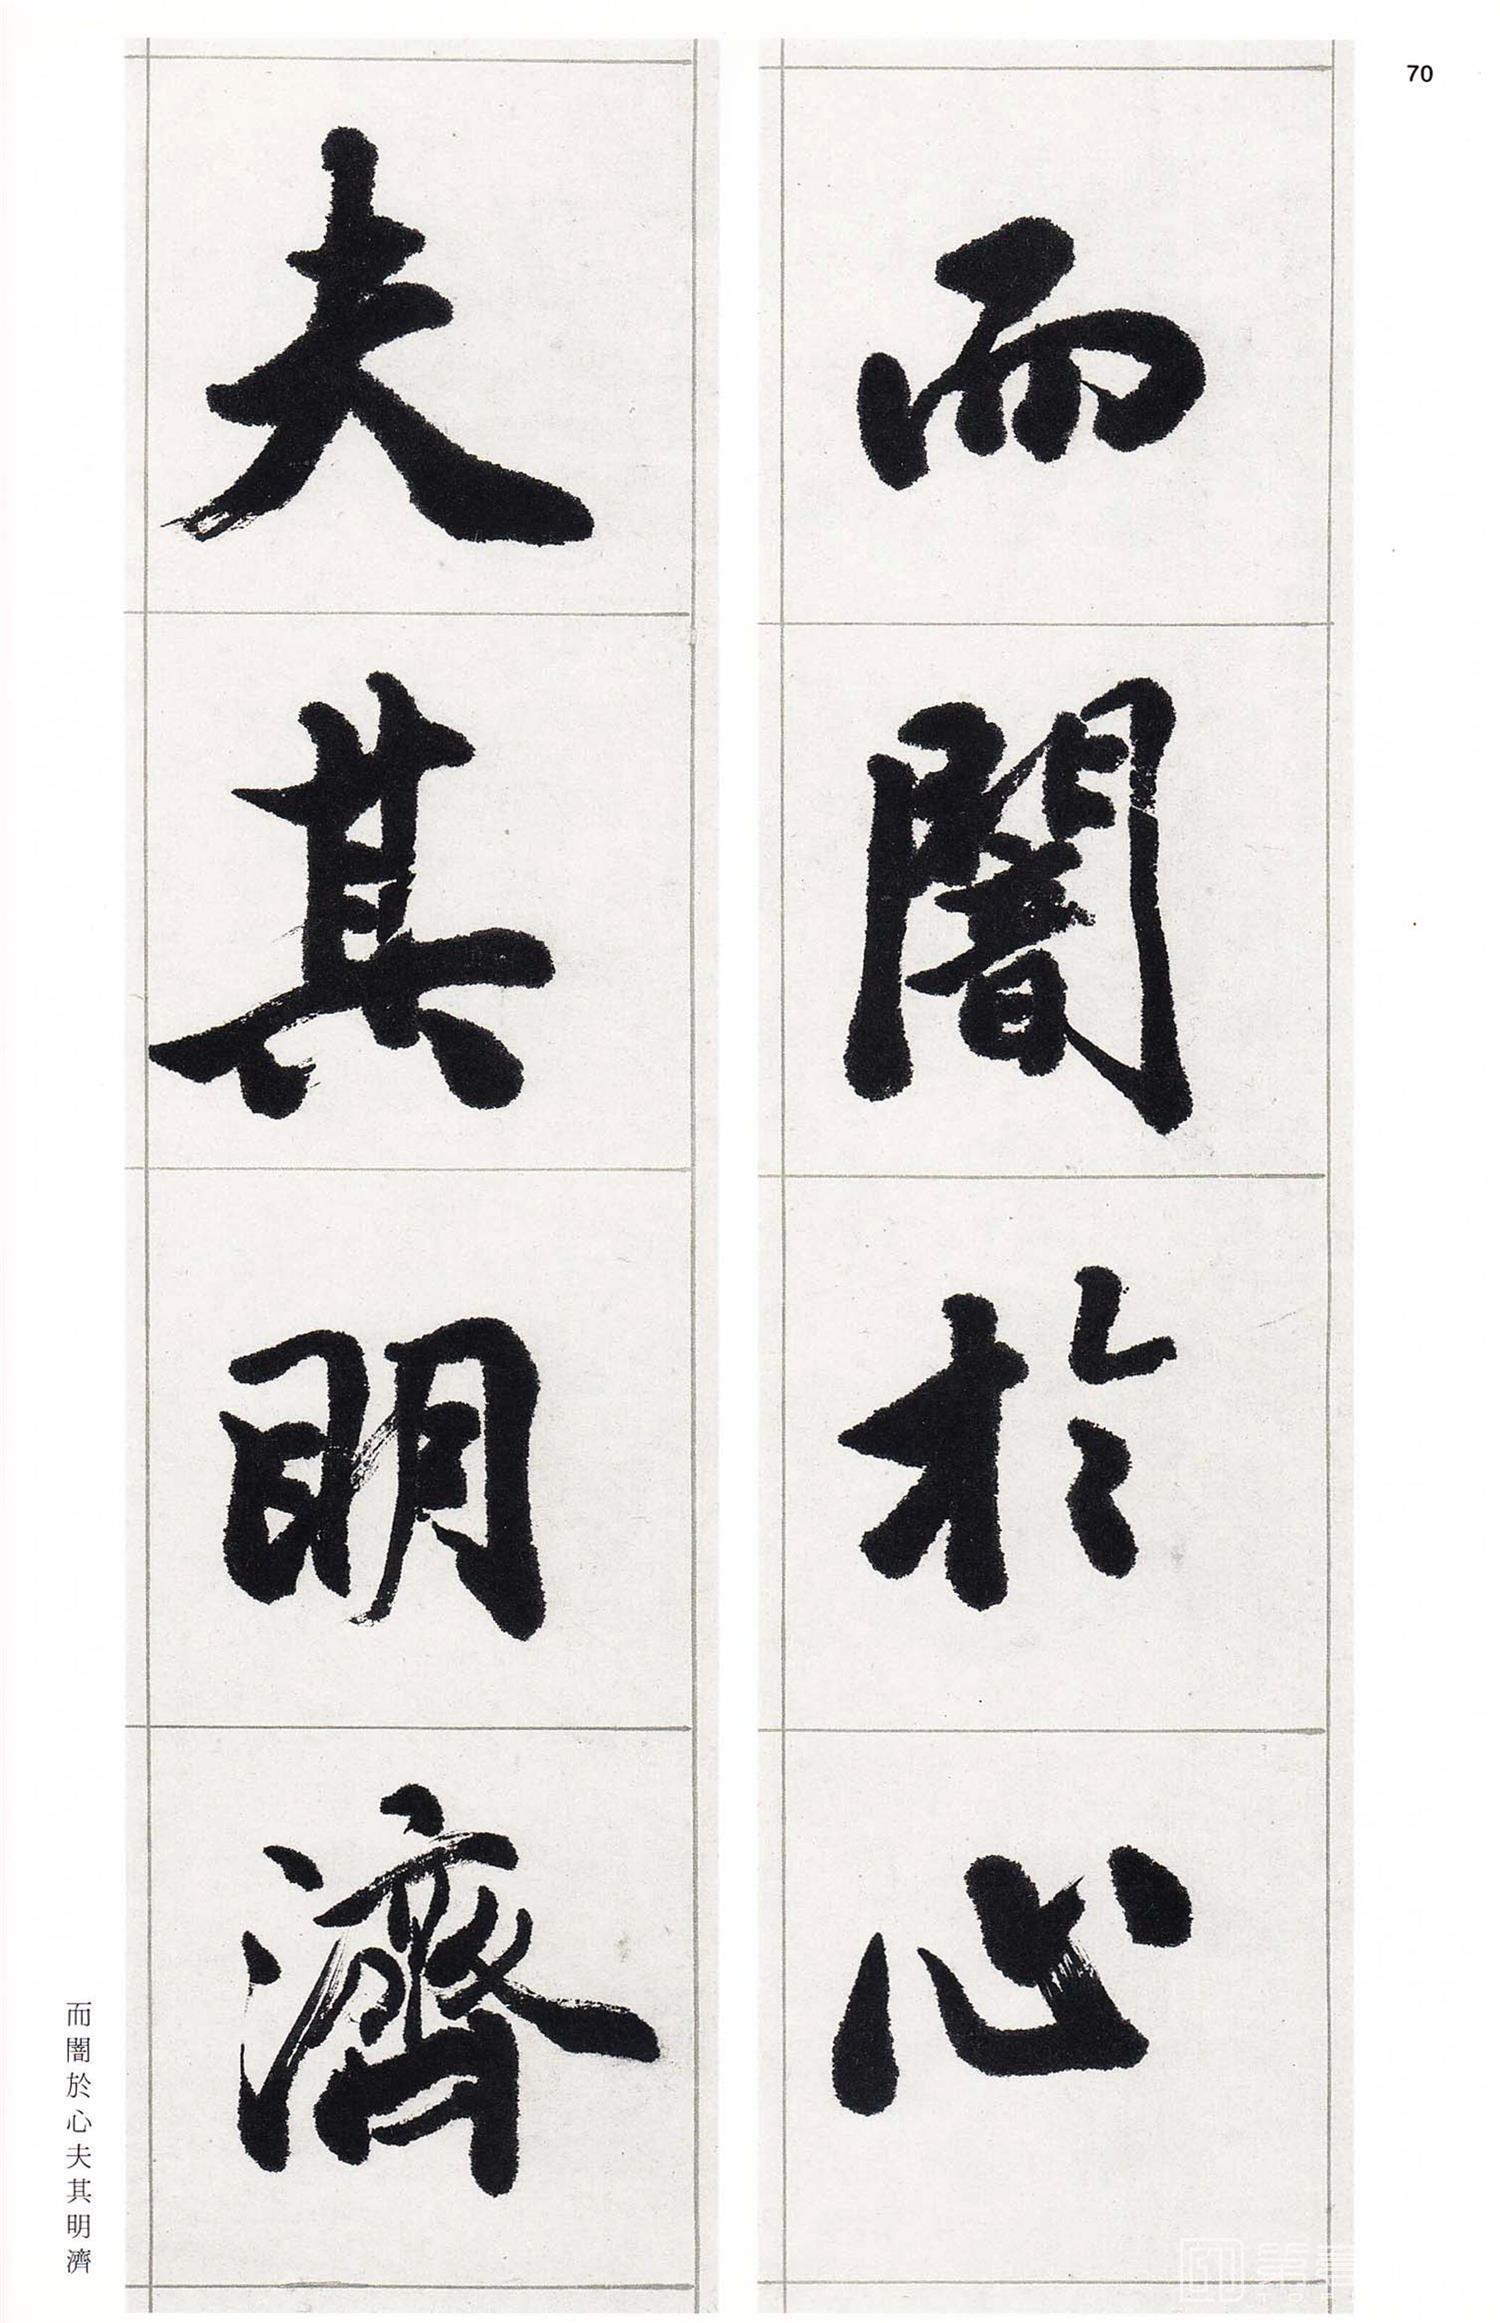 70
而闇於心
夫其明濟
而闇於心夫其明濟